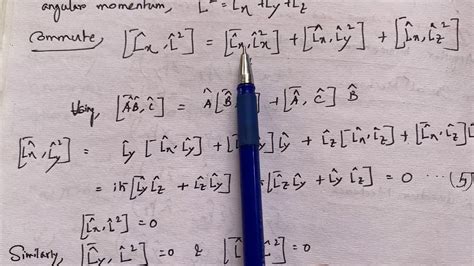 angular momentum, L̂² = L̂x + L̂y + L̂z
Commute, [L̂x, L̂²] = [L̂x, L̂x²] + [L̂x, L̂y²] + [L̂x, L̂z²]
Using, [ÂB̂, Ĉ] = Â[B̂, ] + [Â, Ĉ] B̂
[L̂x, L̂y²] = L̂y [L̂x, L̂y] + [L̂x, L̂y + L̂z [L̂x, L̂z] + [L̂x, L̂
= iħ [L̂y L̂z + L̂z L̂y [L̂z L̂y + L̂y L̂z] = 0 --- (5)
[L̂x, L̂²] = 0
Similarly, [L̂y, L̂²] = 0 & [L̂ ²] = 0